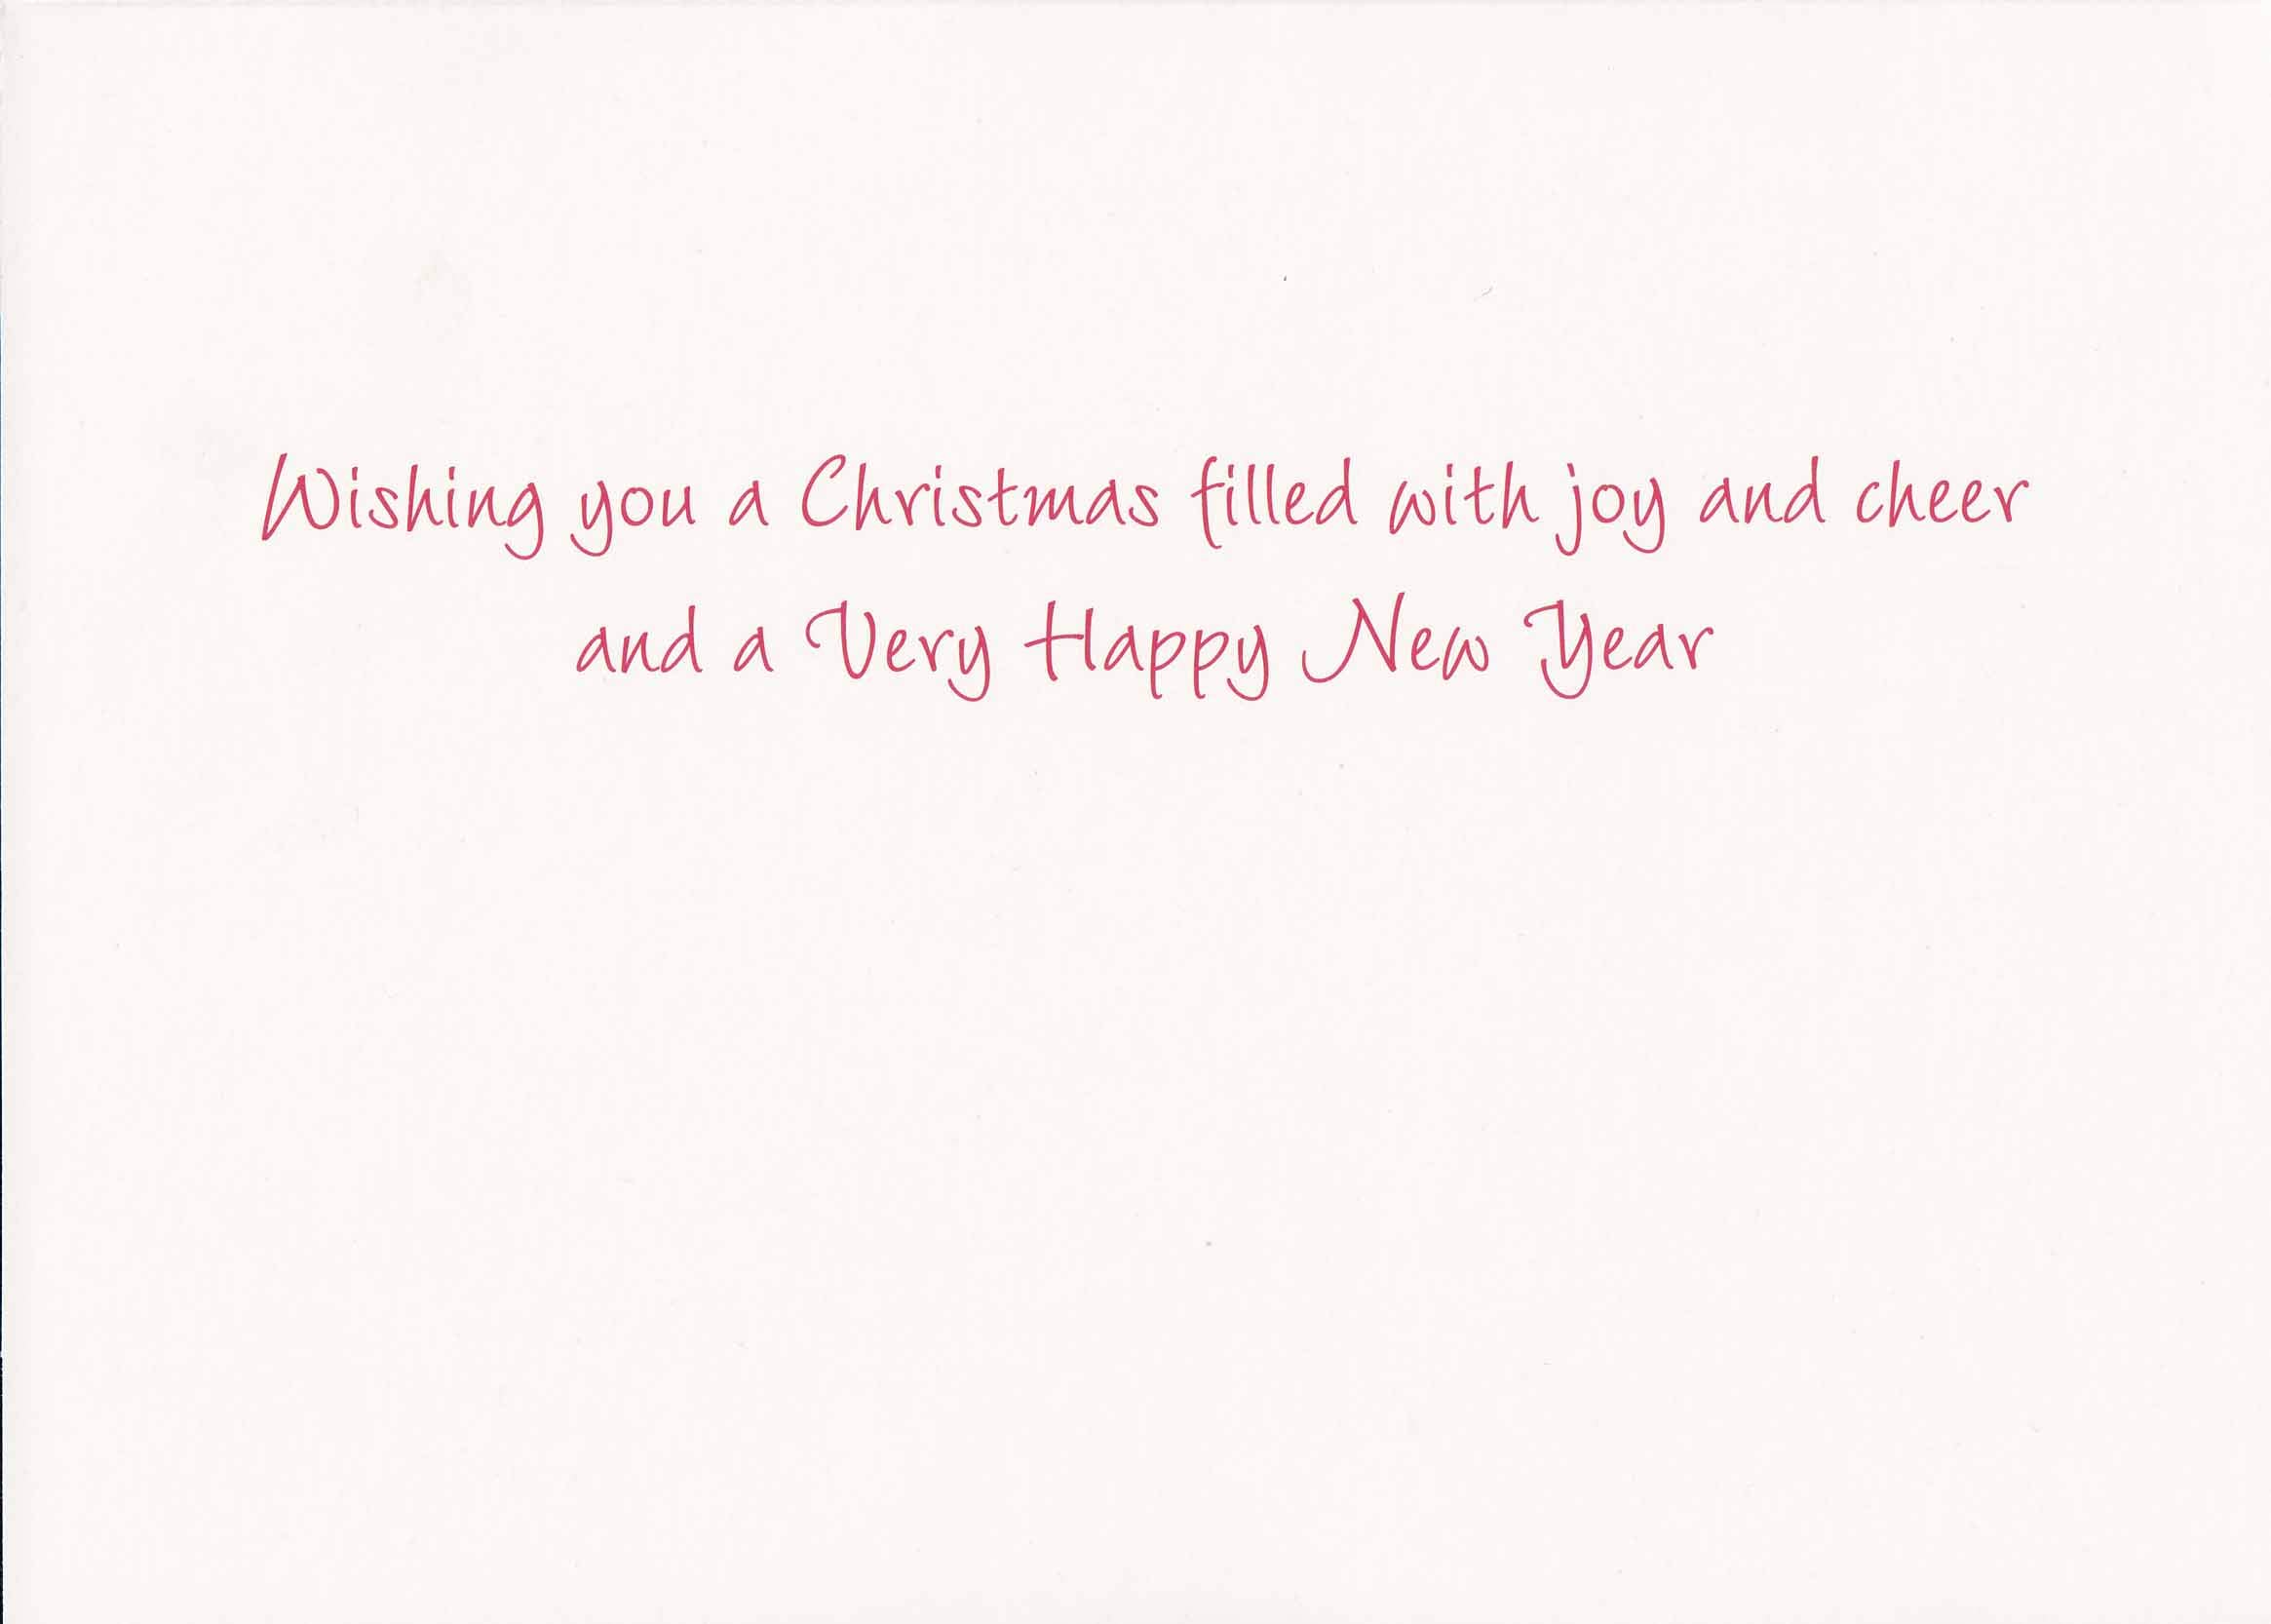 Wishing you a Christmas filled with joy and cheer
and a Very Happy New Year